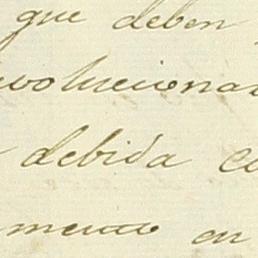 que deben
volucionar
debida co
mento en